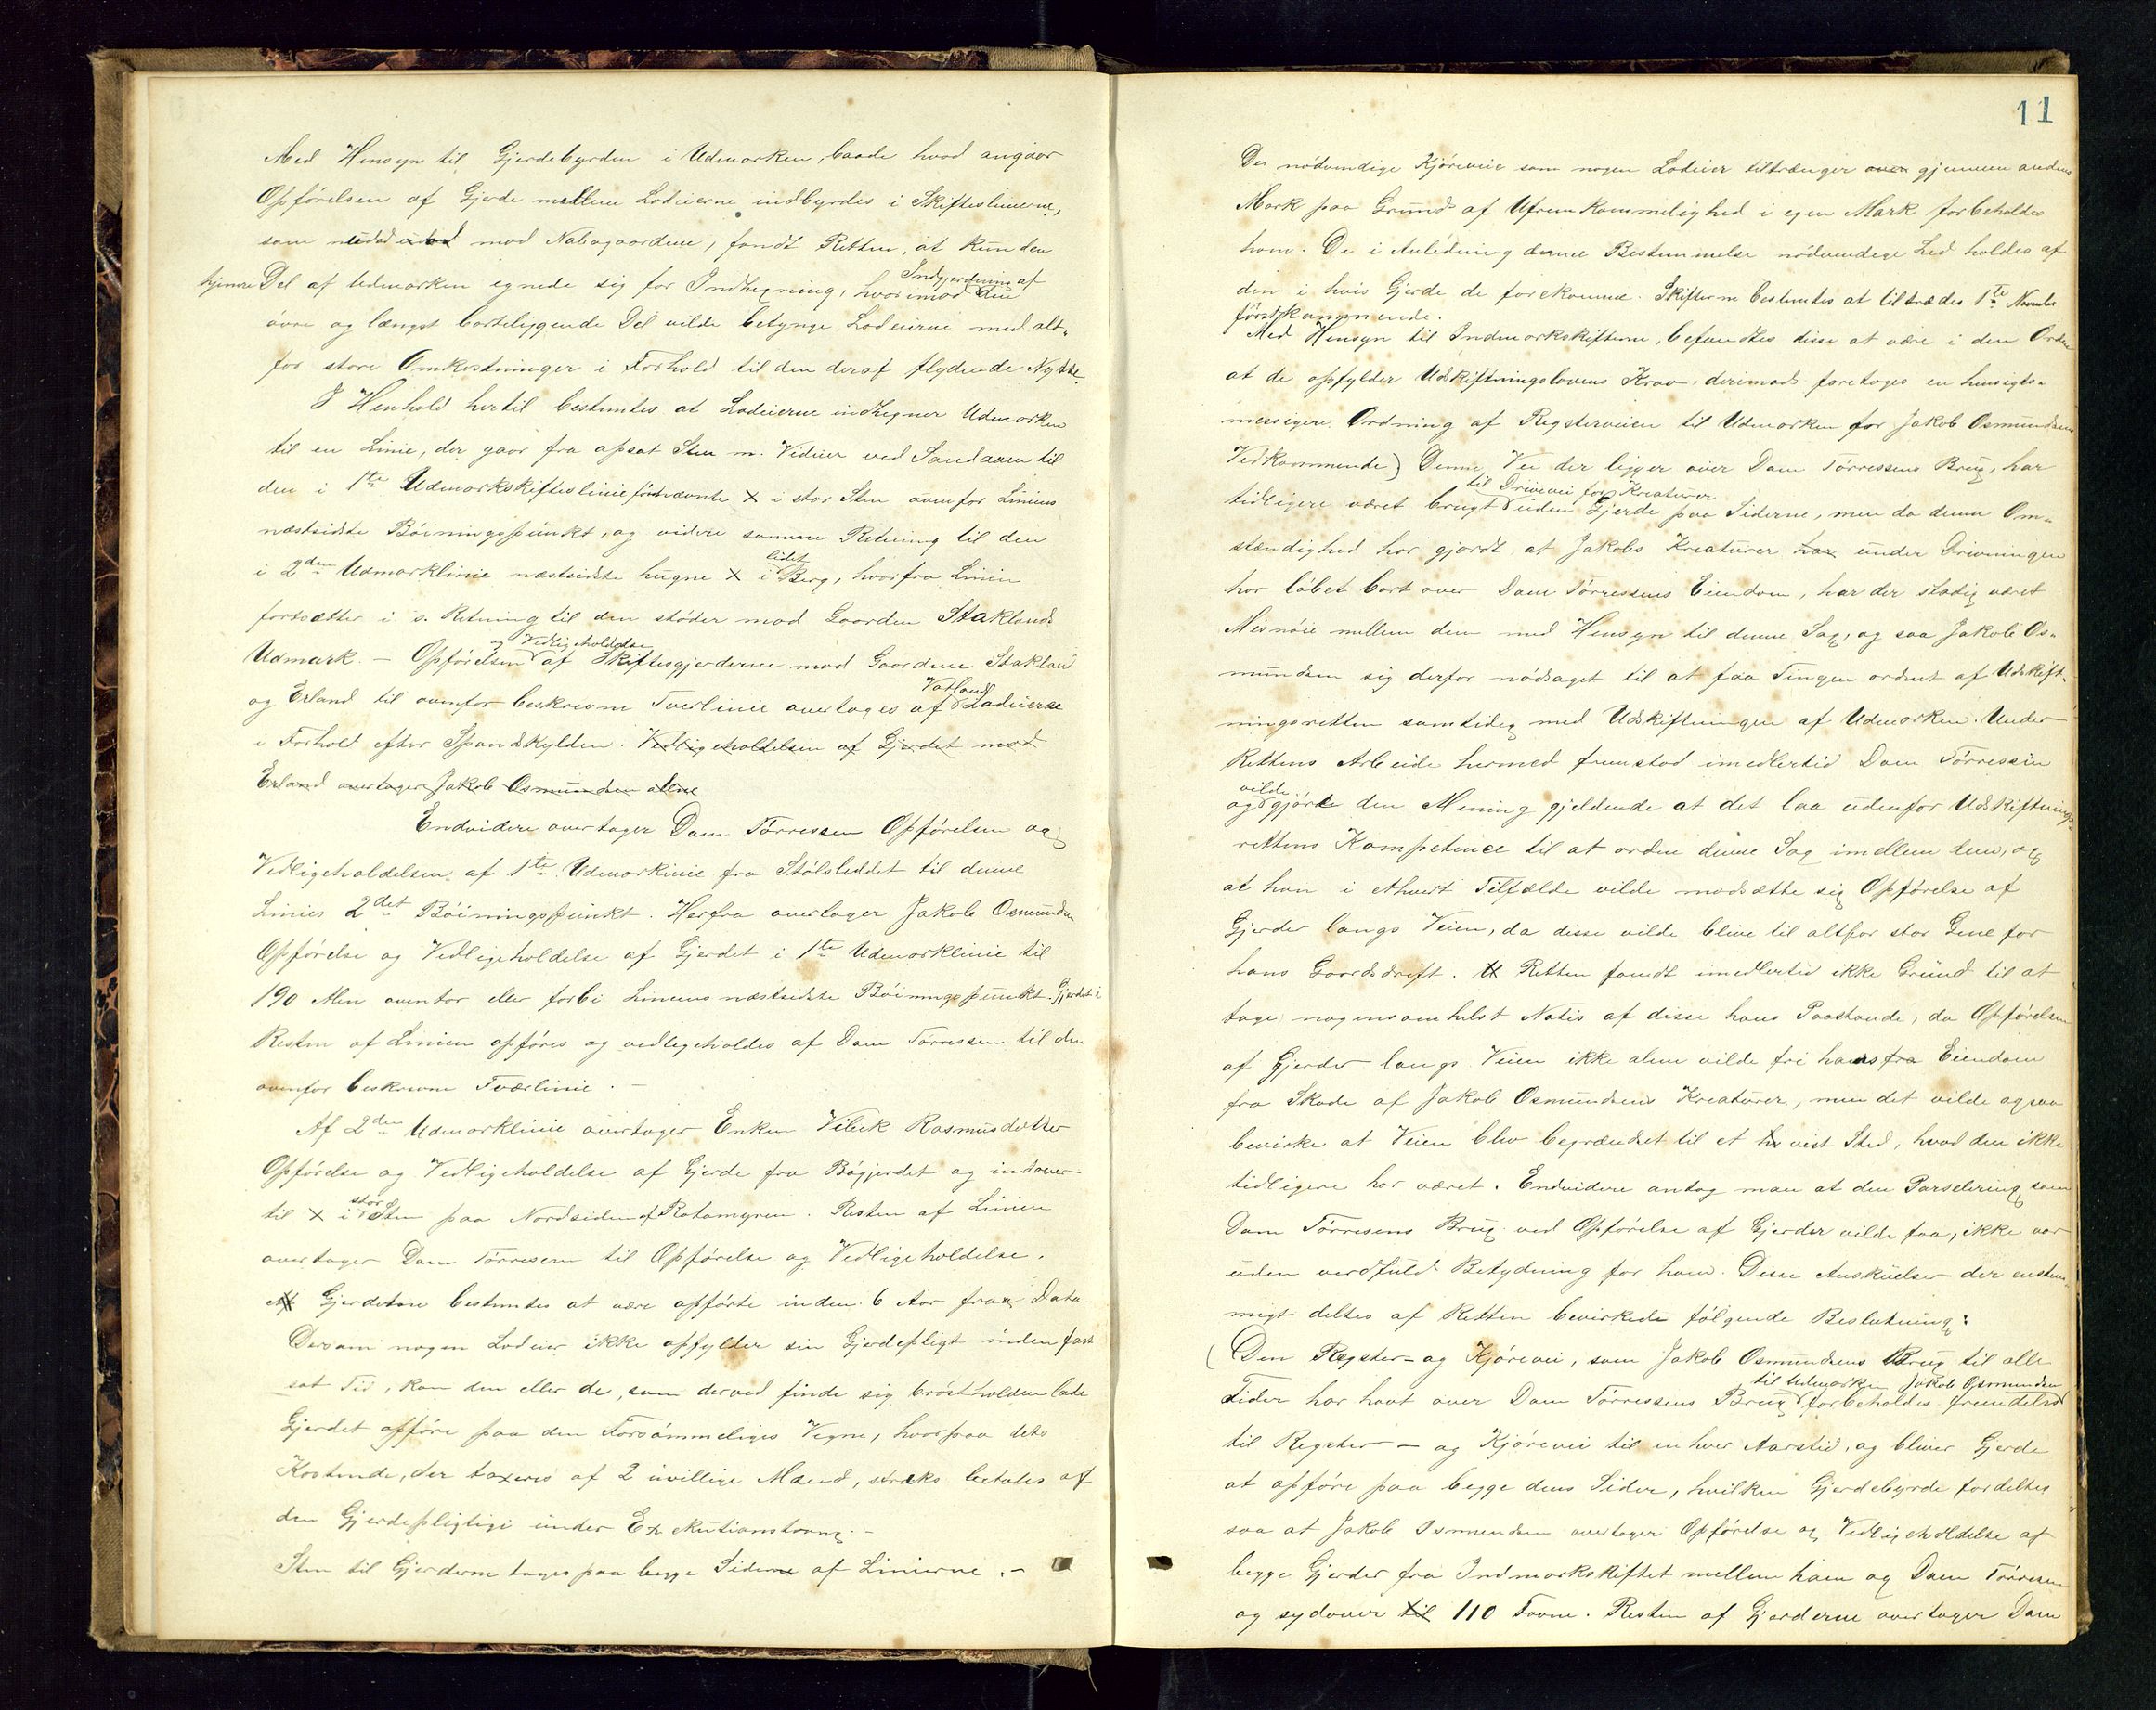 Med Hensyn til Gjerdebyrden i Udmarken, baade hvad angaar
Opförelsen af Gjerde mellem Lodeierne indbyrdes i Skifteslinierne,
som mod Nabogaardene, fandt Retten, at kun den
hjemre Del af Udmarken egnede sig for Indhegning, hvorimod Indgjerdning af den
övre og længst bortliggende Del vilde betynge Lodeierne med alt-
for store Omkostninger i Forhold til den deraf flydende Nytte.
I Henhold hertil bestemtes at Lodeierne indhegner Udmarken
til en Linie, der gaar fra opsat Sten m. Vidner ved Sandaaen til
den i 1te Udmarkskifteslinie förstnævnte X i stor Sten ovenfor Liniens
næstsidste Böiningspunkt, og videre samme Retning til den
i 2den Udmarklinie næstsidste hugne X i lidet Berg, hvorfra Linien
fortsætter i s. Retning til den stöder mod Gaarden Staklands
Udmark. – Opförelsen og Vedligeholdelse af Skiftesgjerderne mod Gaardene Stakland
og Erland til ovenfor beskrevne Tverlinie overtages af Vatland Lodeierne
i Forhold efter Spandskylden. Vedligeholdelsen af Gjerdet mod
Erland overtager Jakob Osmundsen alene
Endvidere overtager Dam Törressen Opförelsen og
Vedligeholdelsen af 1te Udmarklinie fra Stölsleddet til denne
Linies 2det Böiningspunkt. Herfra overtager Jakob Osmundsen
Opförelse og Vedligeholdelse af Gjerdet i 1te Udmarklinie til
190 Alen ovenfor eller forbi Liniens næstsidste Böiningspunkt. Gjerdet i
Resten af Linien opföres og vedligeholdes af Dam Törressen til den
ovenfor beskrevne Tværlinie. –
Af 2den Udmarklinie overtager Enken Vibek Rasmusdatter
Opförelse og Vedligeholdelse af Gjerde fra Bögjerdet og indover
til X i stor Sten paa Nordsiden af Rotamyren. Resten af Linien
overtager Dam Törressen til Opförelse og Vedligeholdelse.
Gjerderne bestemtes at være opförte inden 6 Aar fra Dato
Dersom nogen Lodeier ikke opfylder sin Gjerdepligt inden fast
sat Tid, kan den eller de, som derved finde sig bröstholdne lade
Gjerdet opföre paa den Forsömmeliges Vegne, hvorpaa dets
Kostende, der taxeres af 2 uvillige Mænd, straks betales af
den Gjerdepligtige under Exekutionstvang. –
Sten til Gjerderne tages paa begge Siderne af Linierne. –
11
De nödvendige Kjöreveie som nogen Lodeier tiltrænger over gjennem andens
Mark paa Grund af Ufremkommelighed i egen Mark forbeholdes
ham. De i Anledning denne Bestemmelse nödvendige Led holdes af
den i hvis Gjerde de forekomme. Skifterne bestemtes at tiltrædes 1te Novbr
förstkommende.
Med Hensyn til Indmarkskifterne, befandtes disse at være i den Orden
at de opfylder Udskiftningslovens Krav, derimod foretoges en hensigts-
messigere Ordning af Regsterveien til Udmarken for Jakob Osmundsens
Vedkommende) Denne Vei der ligger over Dam Törressens Brug, har
tidligere været brugt til Drivevei for Kreaturer uden Gjerde paa Siderne, men da denne Om-
stændighed har gjordt at Jakobs Kreaturer har under Drivningen
har löbet bort over Dam Törressens Eiendom, har der stadig været
Misnöie mellem dem med Hensyn til denne Sag, og saa Jakob Os-
mundsen sig derfor nödsaget til at faa Tingen ordnet af Udskift-
ningsretten samtidig med Udskiftningen af Udmarken. Under
Rettens Arbeide hermed fremstod imedlertid Dam Törressen
og vilde gjöre den Mening gjeldende at det laa udenfor Udskiftnings-
rettens Kompetence til at ordne denne Sag imellem dem, og
at han i Ahvert Tilfælde vilde modsætte sig Opförelse af
Gjerder langs Veien, da disse vilde blive til altfor stor Gene for
hans Gaardsdrift. Retten fandt imedlertid ikke Grund til at
tage nogensomhelst Notis af disse hans Paastande, da Opförelsen
af Gjerder langs Veien ikke alene vilde fri hans fra Eiendom
fra Skade af Jakob Osmundsens Kreaturer, men det vilde ogsaa
bevirke at Veien blev begrændset til et vist Sted, hvad den ikke
tidligere har været. Endvidere antog man at den Parselering, som
Dam Törresens Brug ved Opförelse af Gjerder vilde faa, ikke var
uden verdfuld Betydning for ham. Disse Anskuelser der enstem-
migt deltes af Retten bevirkede fölgende Beslutning:
(Den Regster- og Kjörevei, som Jakob Osmundsens Brug til alle
Tider har havt over Dam Törressens Brug til Udmarken forbeholdes Jakob Osmundsen fremdeles
til Regster – og Kjörevei til enhver Aarstid, og bliver Gjerde
at opföre paa begge dens Sider, hvilken Gjerdebyrde fordeltes
saa at Jakob Osmundsen overtager Opförelse og Vedligeholdelse af
begge Gjerder fra Indmarkskiftet mellem ham og Dam Törressen
og sydover til 110 Favne. Resten af Gjerderne overtager Dam